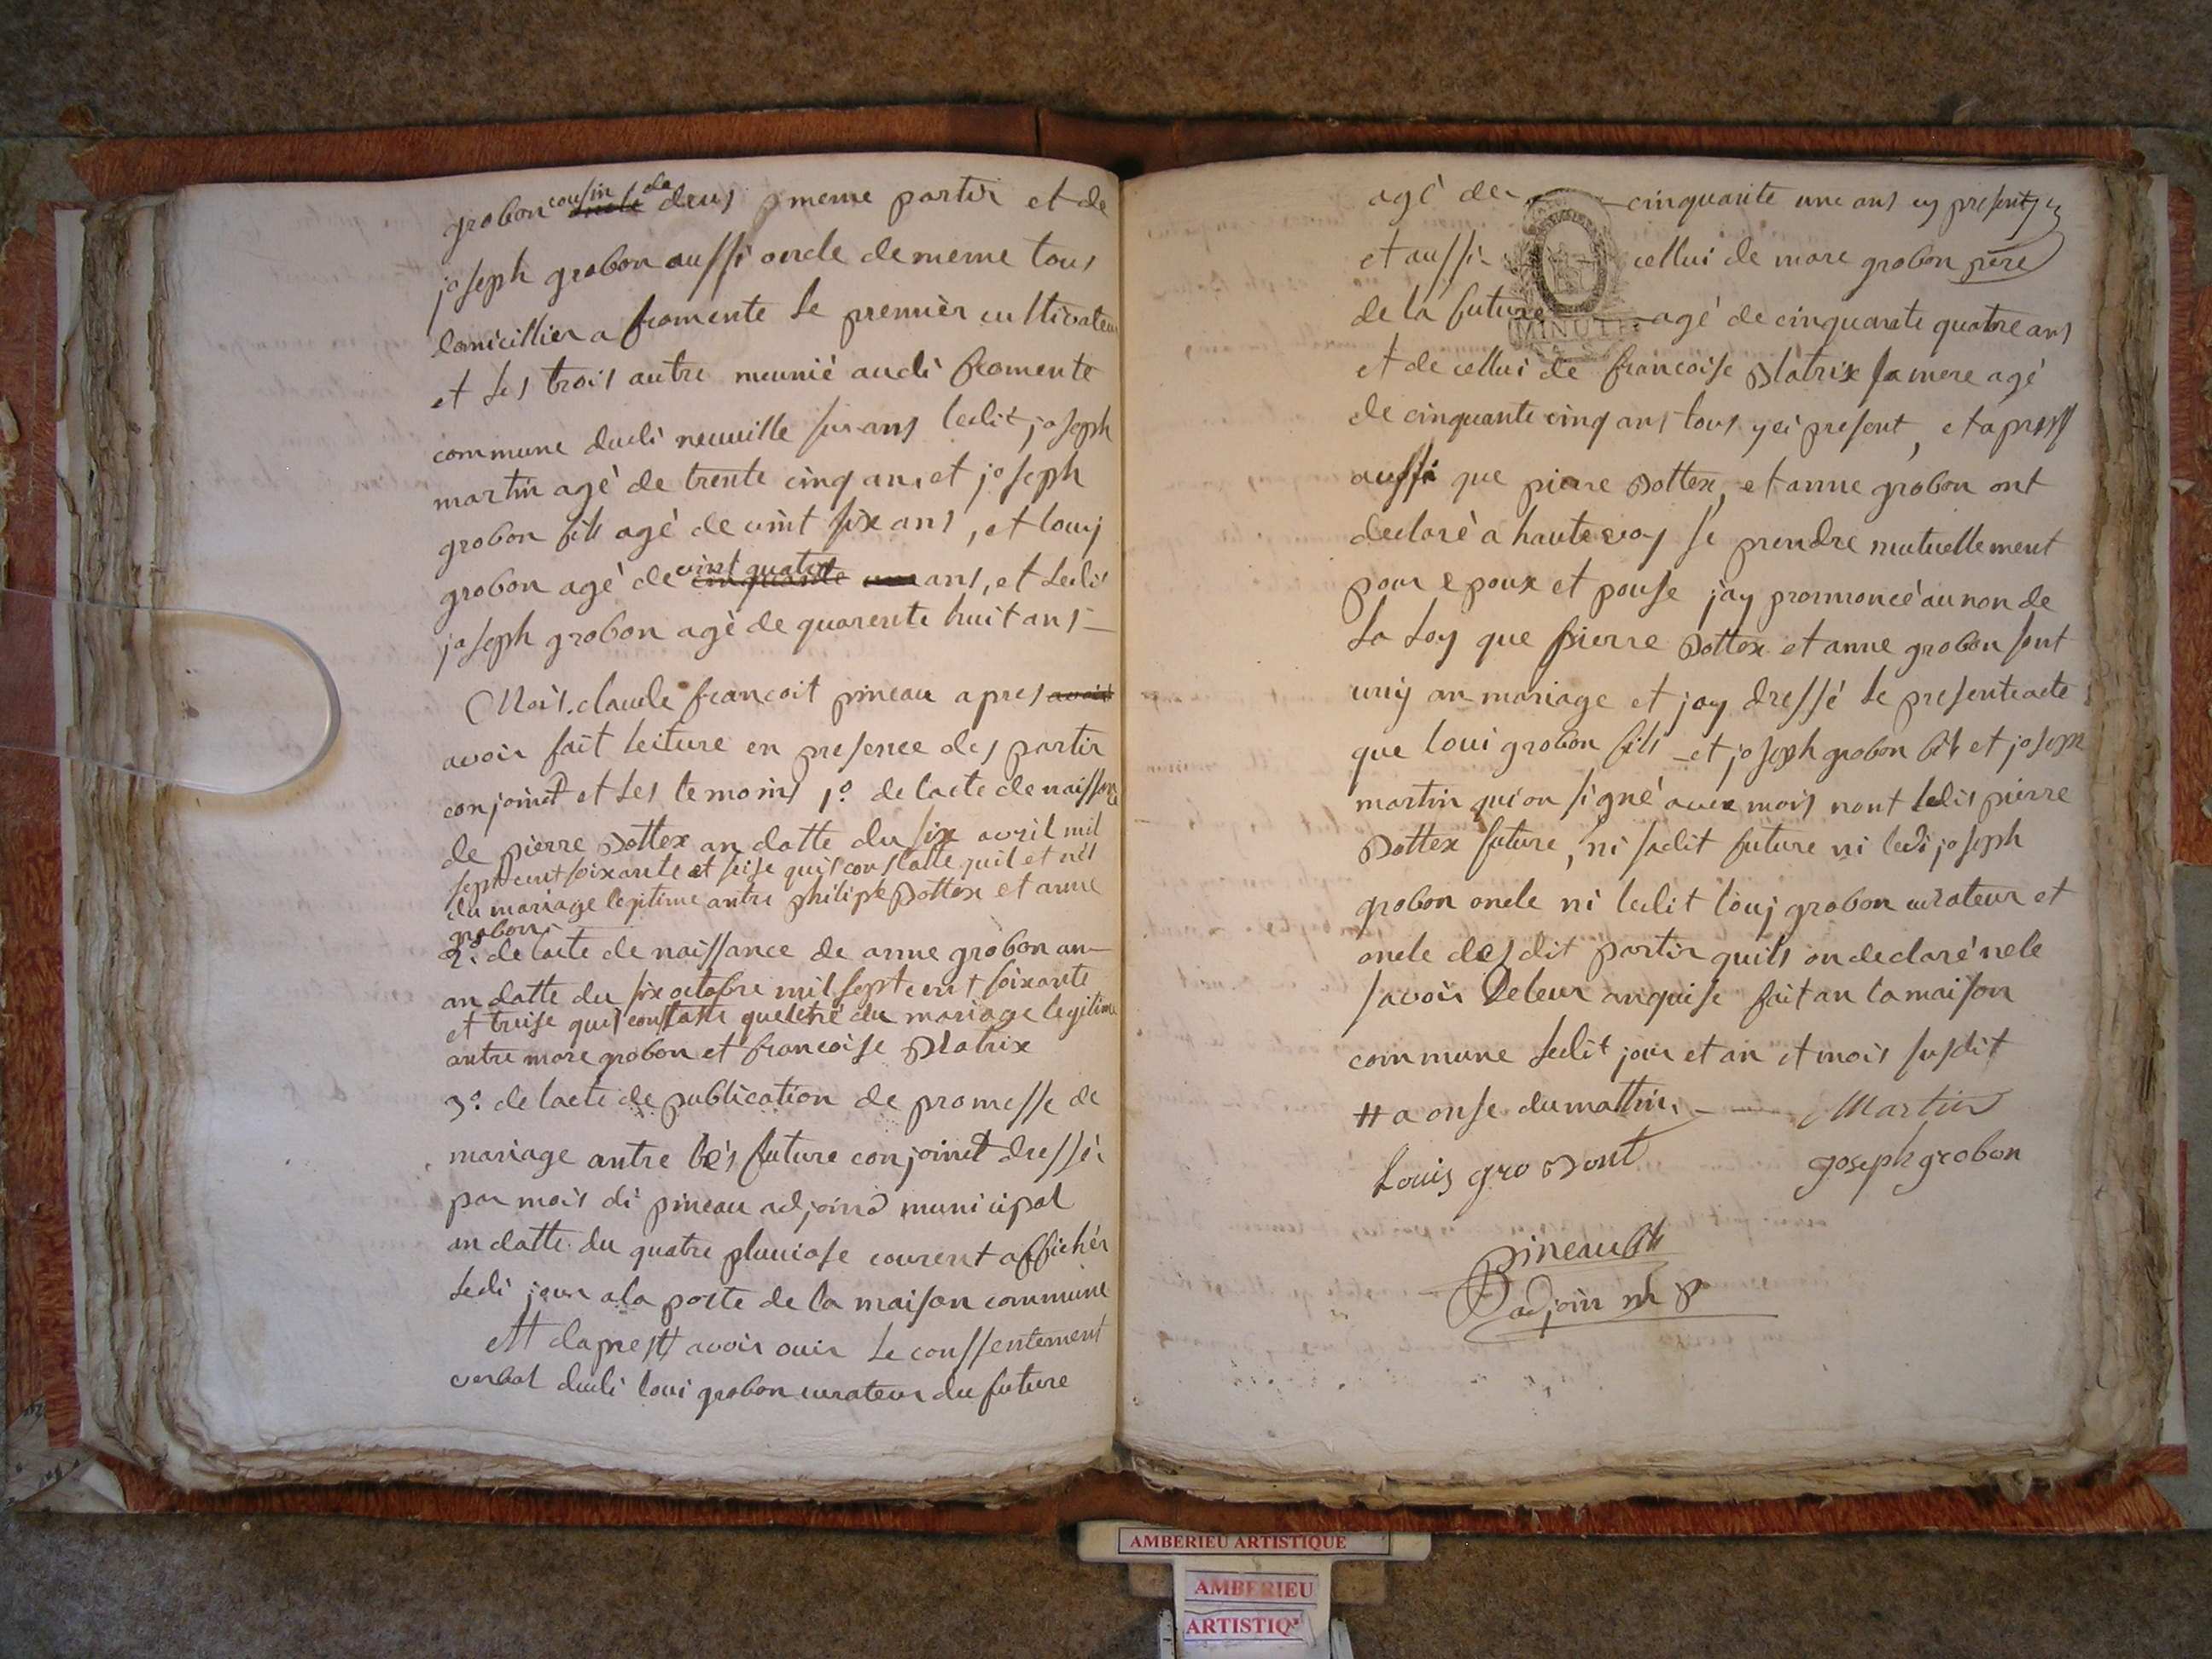 grobon cousin de deus meme partir et de
joseph grobon aussi oncle de meme tous
domicillier a fromente le premièr cultivateur
et les trois autre meunié audi fromente
commune dudi neuville sur ans ledit joseph
martin agé de trente cinq ans et joseph
grobon fils agé de vint six ans, et louj
grobon agé de vint quatre ans, et ledis
joseph grobon agé de quarente huit ans
Mois claude francoit pineau apres avoir
avoir fait leiture en presence des partir
conjoinct et les temoins 1° de lacte de naissance
de pierre Bottex an datte du six avril mil
sept cent soixante et seise quis constatte quil et nés
du mariage legitime antre philipe Bottex et anne
grobon
2° de lacte de naissance de anne grobon an
an datte du six octobre mil sept cent soixante
et treise quis constatte quelené du mariage legitime
antre marc grobon et francoise Platrix
3° de lacte de publication de promesse de
mariage antre les future conjoinct dressé
par mois di pineau adjoind municipal
an datte du quatre pluviose courent affichér
ledi jour a la porte de la maison commune
ett dapres avoir ouir le conssentement
verbal dudi loui grobon curateur du future
agé de cinquante une ans ey presentj
et aussi cellui de marc grobon père
de la future agé de cinquante quatre ans
MINUTE
et de cellui de francoise Platrix sa mere agé
de cinquante cinq ans tous yci present, et apress
aussi que pierre Bottex, et anne grobon ont
declaré a haute voy se prendre mutuellement
pour epoux et pouse jay pronmoncé au non de
la Loy que pierre Bottex et anne grobon sont
unij an mariage et jay dressé le present acte
que loui grobon fils et joseph grobon fils et joseph
martin qui on signé avex mois nont ledis pierre
Bottex future, ni sadit future ni ledi joseph
grobon oncle ni ledit louj grobon curateur et
oncle desdit partir quils on declaré nele
savoir De leur anquise fait an la maison
commune ledit jour et an et mois susdit
# a onse du mattin. Martin
Louis gro Bont Joseph grobon
pineau fils
adjoin
AMBERIEU ARTISTIQUE
AMBERIEU
ARTISTIQ